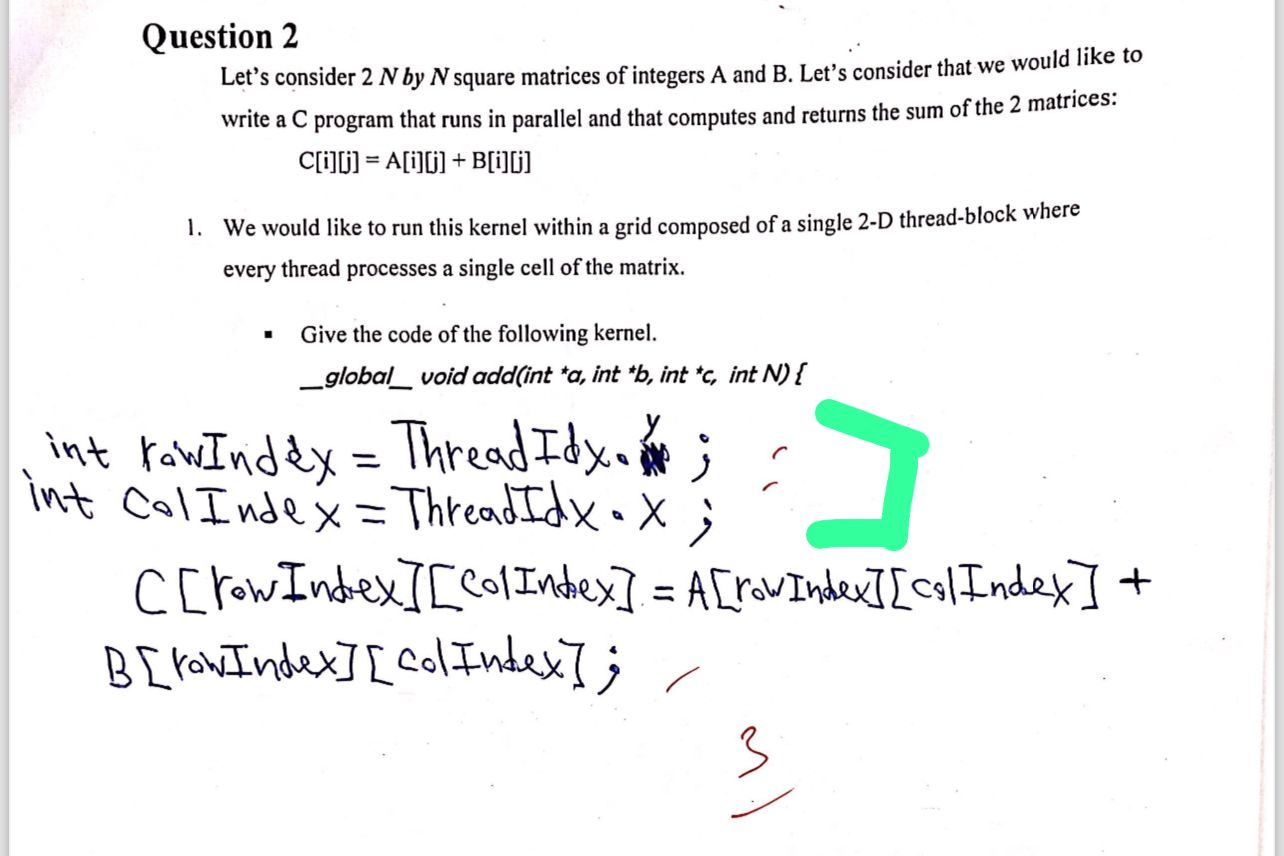 Question 2
Let's consider 2 N by N square matrices of integers A and B. Let's consider that we would like to
write a C program that runs in parallel and that computes and returns the sum of the 2 matrices:
C[i][j] = A[i][j] + B[i][j]
1. We would like to run this kernel within a grid composed of a single 2-D thread-block where
every thread processes a single cell of the matrix.
▪ Give the code of the following kernel.
__global__ void add(int *a, int *b, int *c, int N) {
int rowIndex = ThreadIdx.y ;
int ColIndex = ThreadIdx.x ;
C[rowIndex][colIndex] = A[rowIndex][colIndex] +
B[rowIndex][colIndex] ;
3